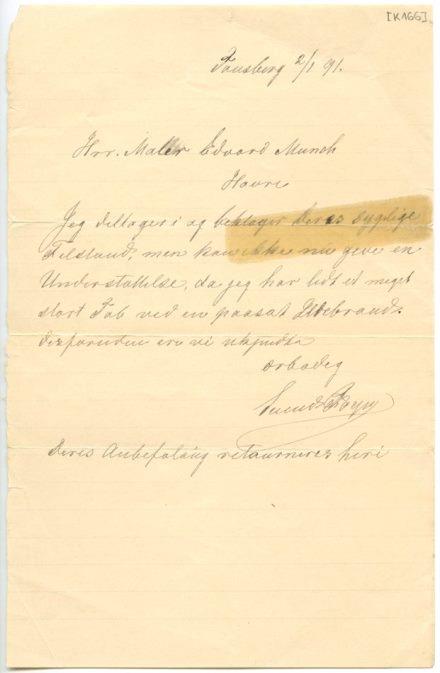 [K166]
Tønsberg 2/1 91.
Hrr. Maler Edvard Munch
Havre
Jeg deltager i og beklager Deres sygelige
Tilstand, men kan ikke nu give en
Understøttelse, da jeg har lidt et meget
stort Tab ved en paasat Ildebrand.
desforuden ere vi
Ærbødig
Svend Foyn
Deres Anbefaling returneres heri